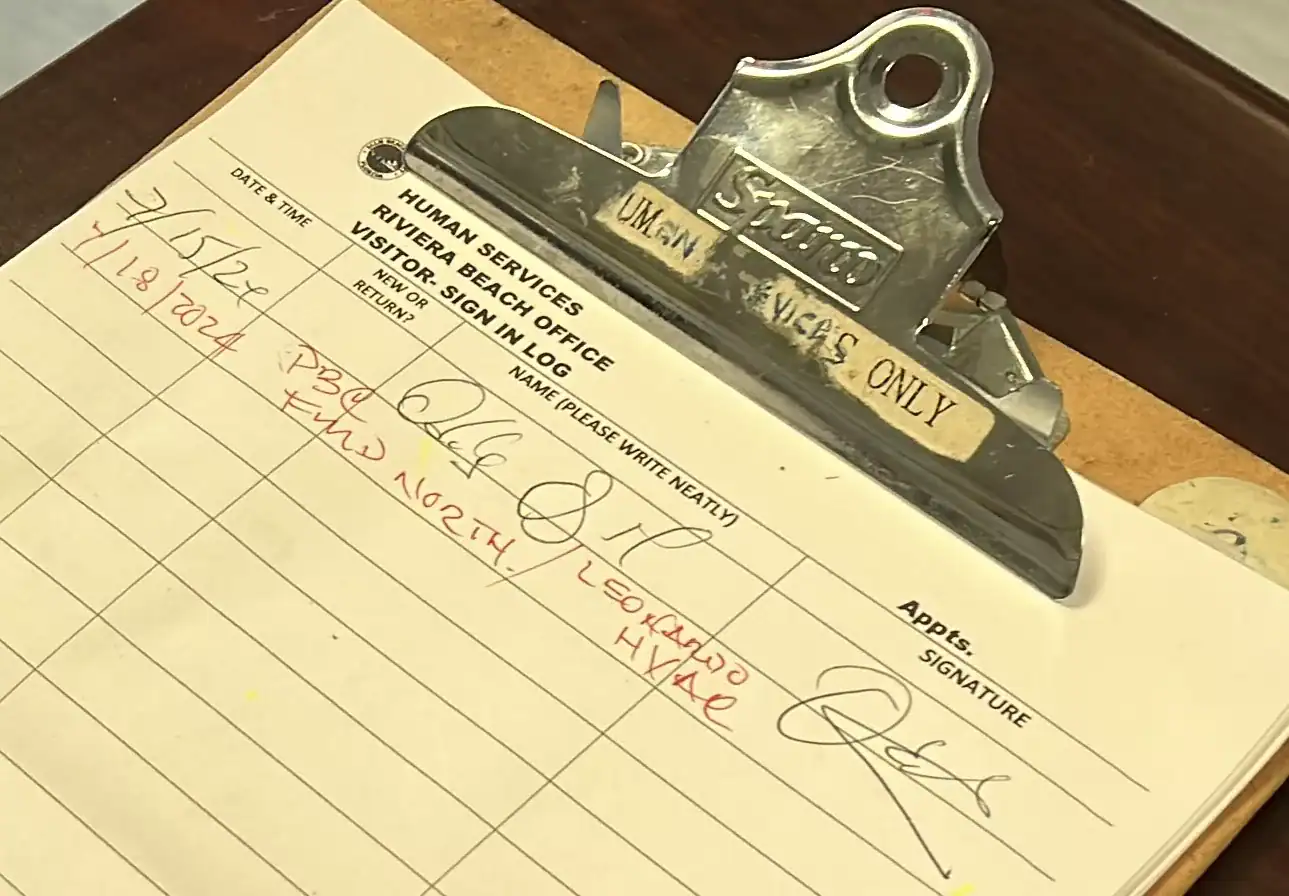 Sparco
UMAN
VICES ONLY
HUMAN SERVICES
RIVIERA BEACH OFFICE
VISITOR- SIGN IN LOG
Appts.
DATE & TIME
NEW OR
RETURN?
NAME (PLEASE WRITE NEATLY)
SIGNATURE
7/15/24
7/18/2024
PBC
FMD NORTH. / LEONARDO
HVAC